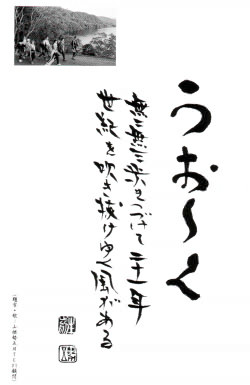 うお〜く
無二無三歩きつづけて二十一年
世紀を吹き抜けゆく風がある
(題字・歌